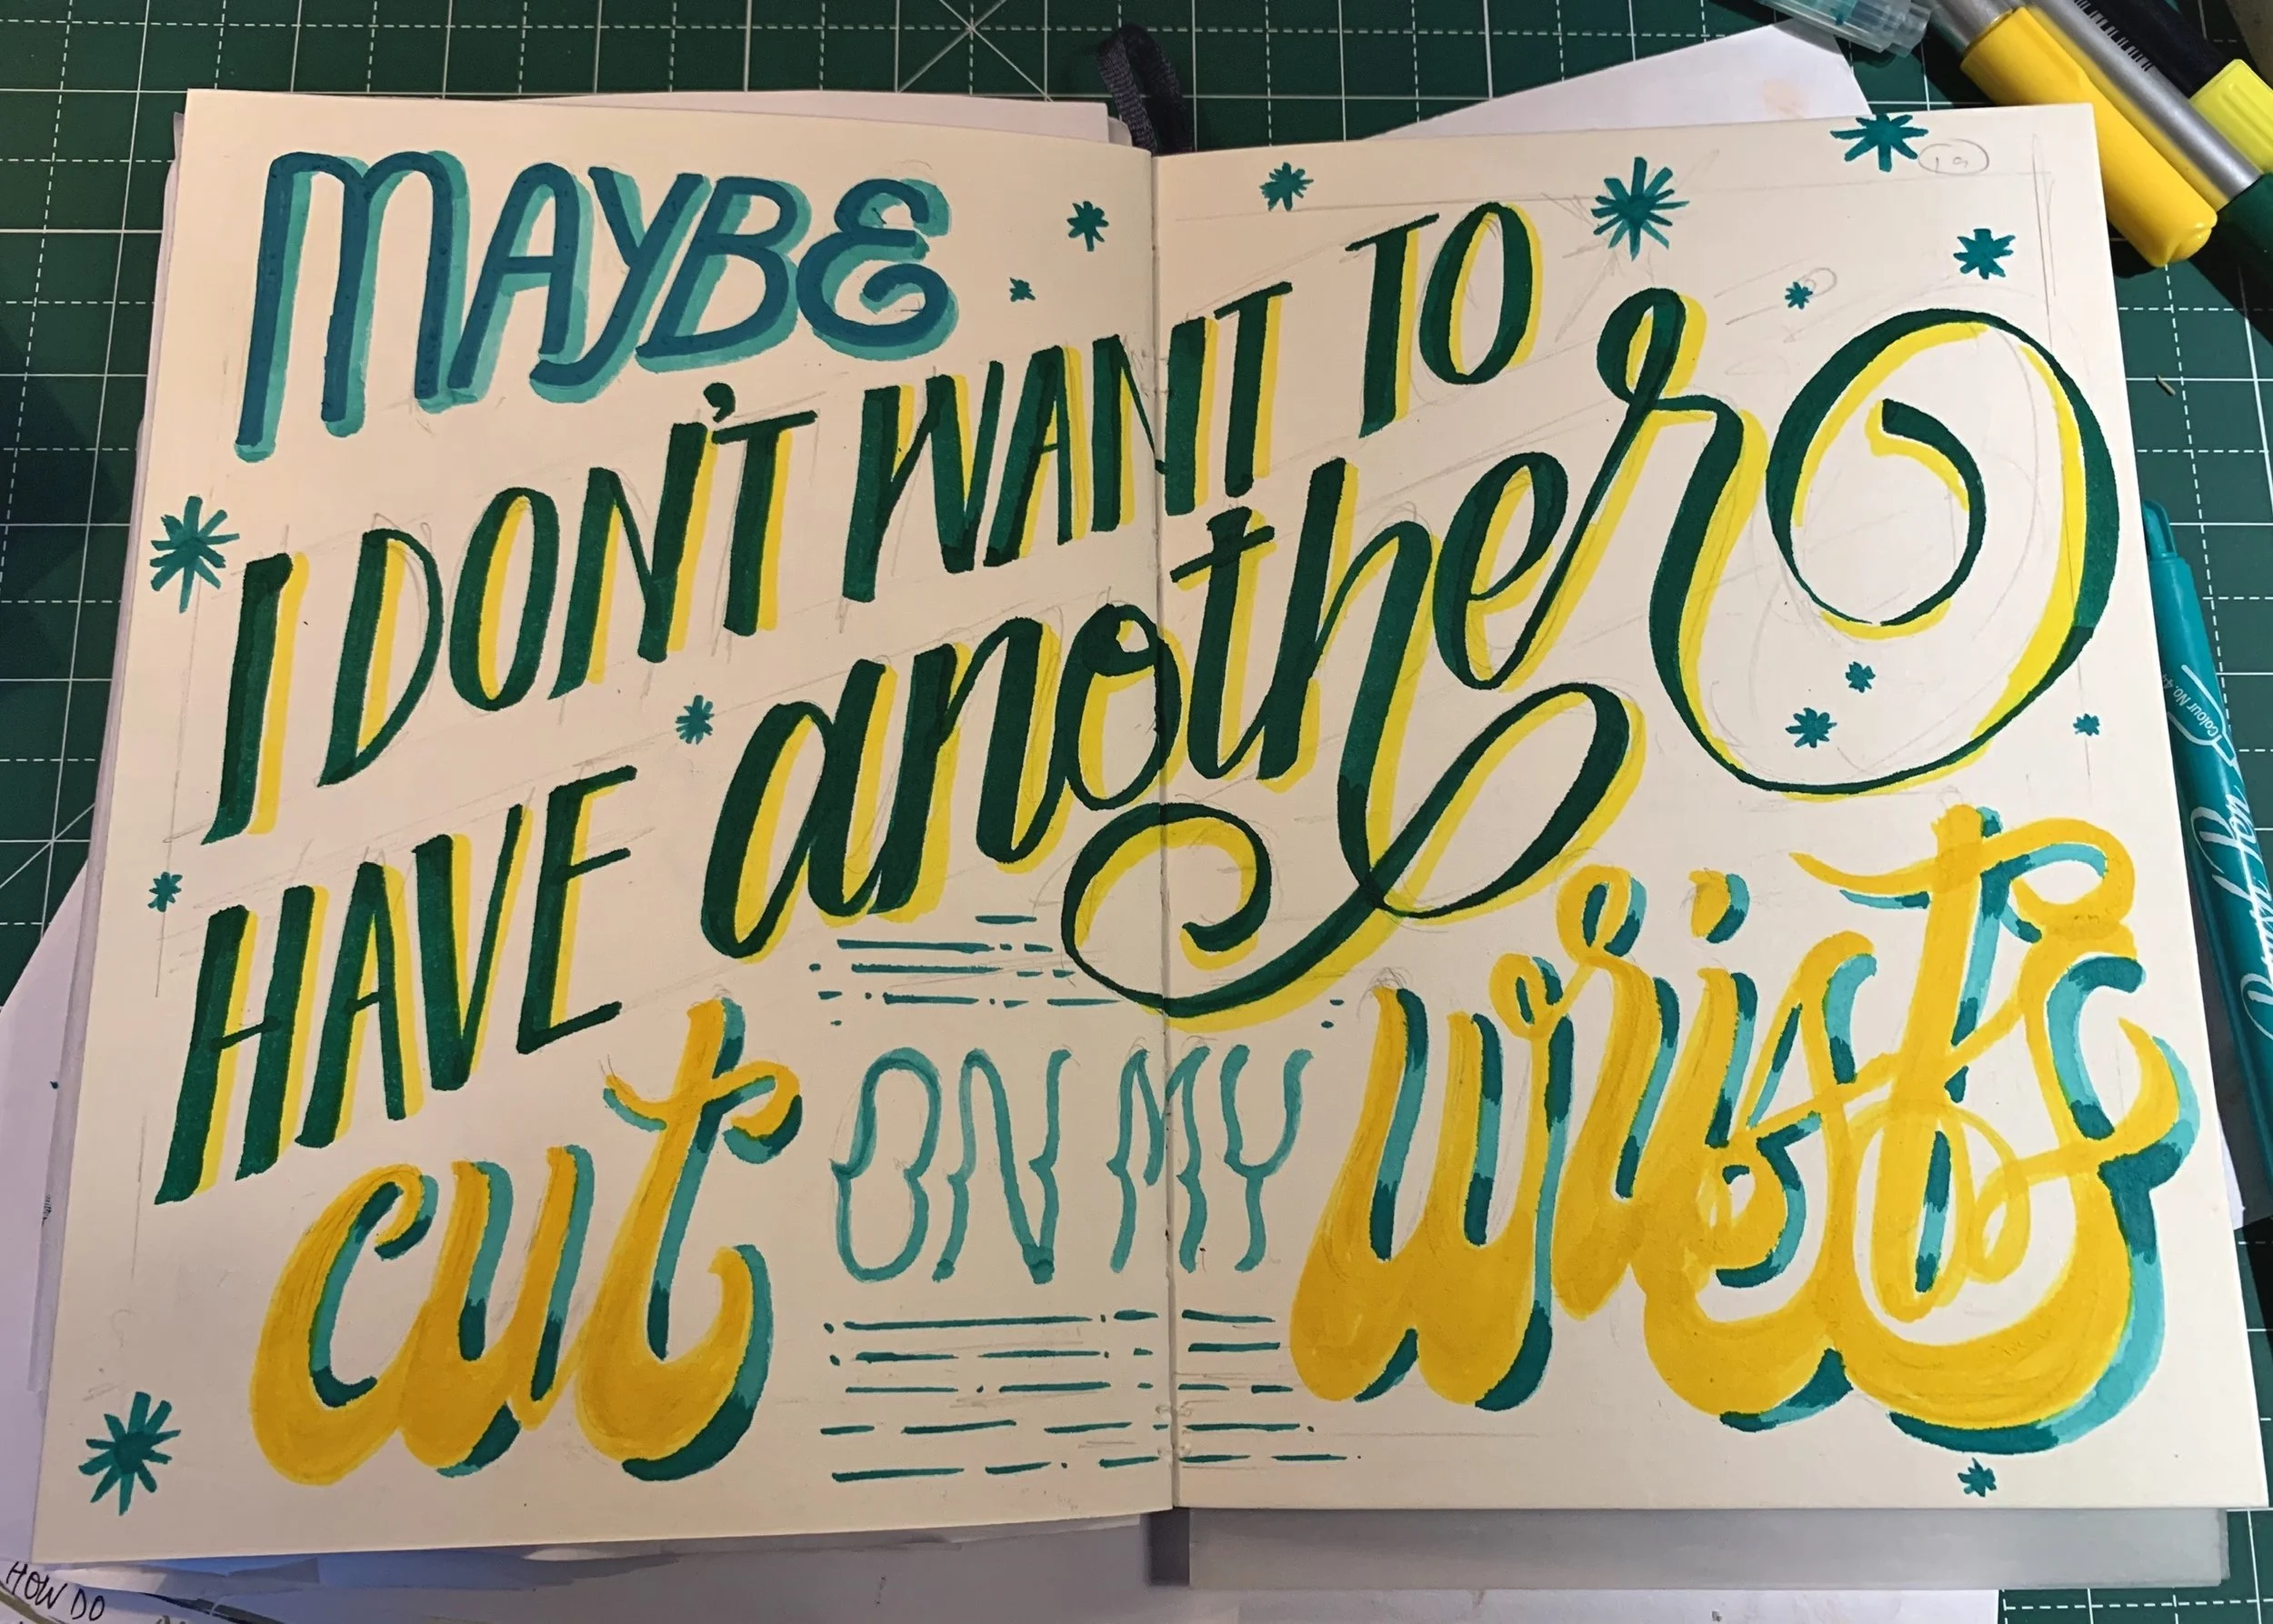 MAYBE
I DON'T WANT TO
HAVE another
cut ON MY wrists
19
Colour No.44
Brush Pen
HOW DO